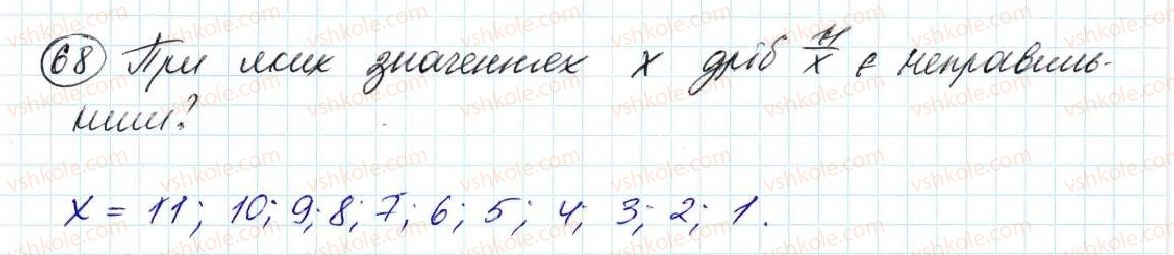 68 При яких значеннях x дріб 11/x є неправиль-
ним?
x = 11; 10; 9; 8; 7; 6; 5; 4; 3; 2; 1.